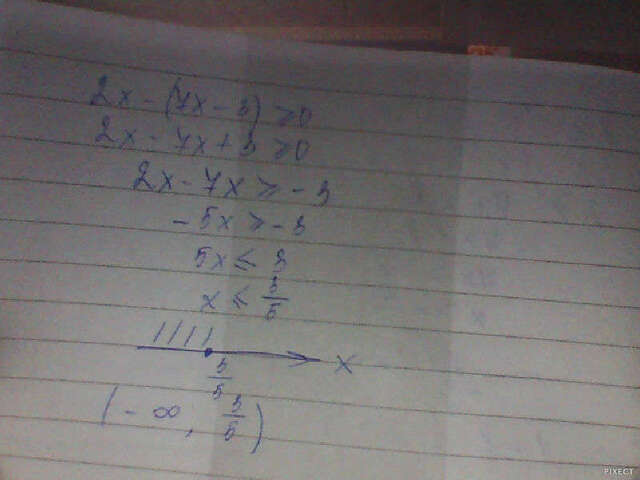 2x - (7x - 3) ≥ 0
2x - 7x + 3 ≥ 0
2x - 7x ≥ - 3
- 5x ≥ - 3
5x ≤ 3
x ≤ 3/5
x
3/5
(- ∞, 3/5)
PIXECT